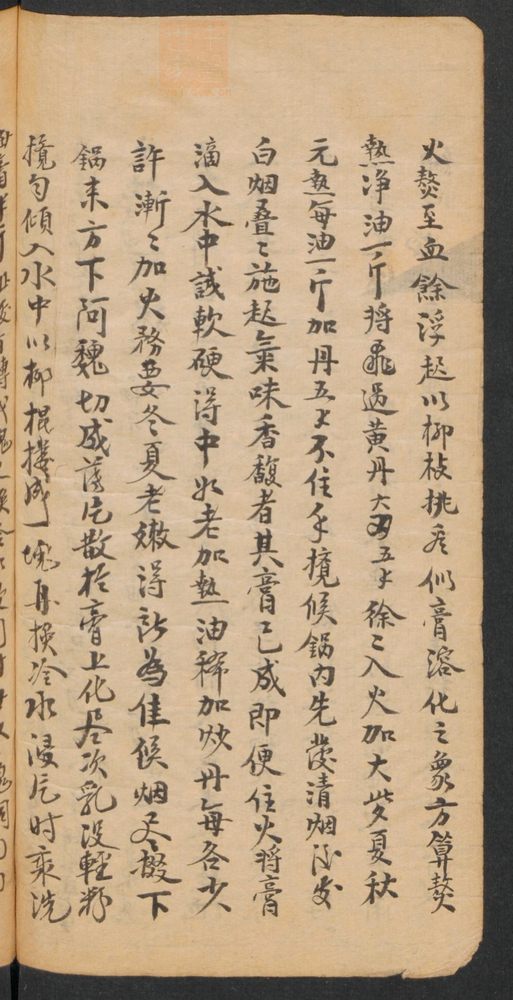 火熬至血餘浮起以柳枝挑看似膏溶化之象方算熬
熱净油一斤将飛過黄丹六两五才徐〻入火加大些夏秋
元熱每油一斤加丹五才不住手攪候鍋内先發清烟後发
白烟叠〻施起氣味香馥者其膏已成即便住火将膏
滴入水中試軟硬得中如老加熱油稀加炒丹每各少
許漸〻加火務要冬夏老嫩得所為佳候烟尽掇下
鍋来方下阿魏切成薄片散於膏上化尽次乳没輕粉
攪匀傾入水中以柳棍摟成一塊再换冷水浸片时乘洗